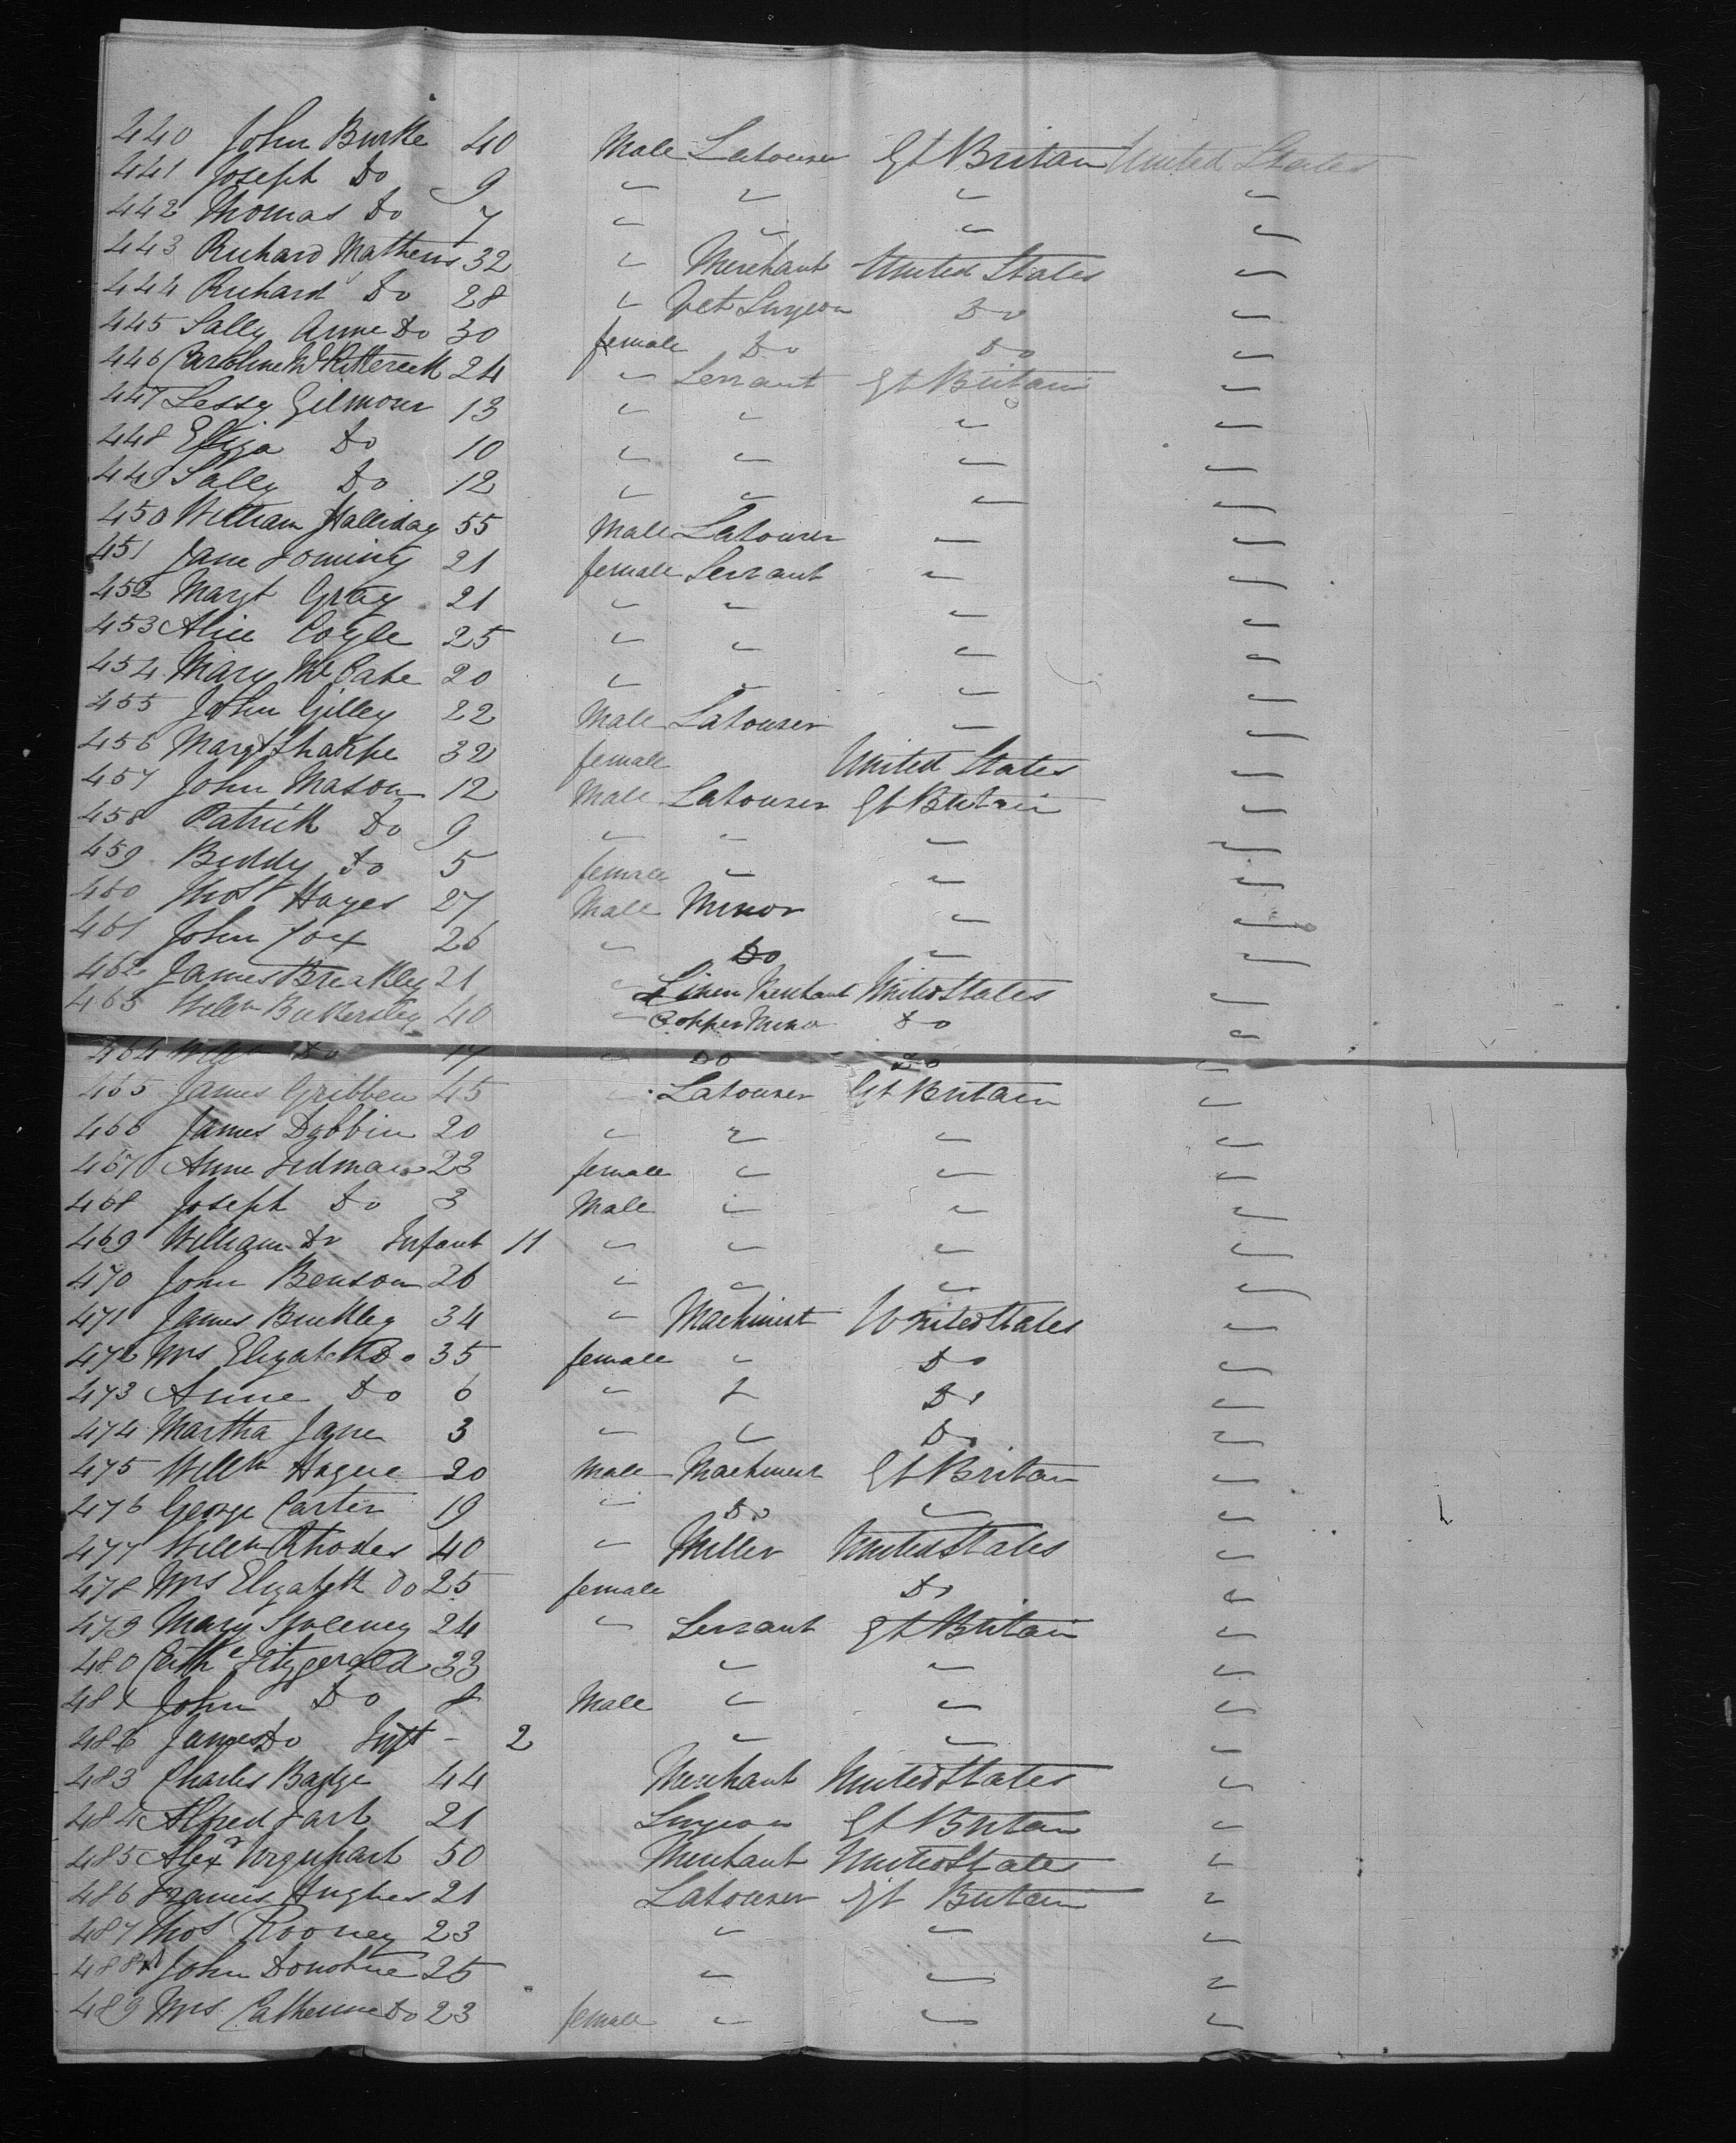 440 John Burke 40 Male Labourer Gt Britan United States
441 Joseph Do 9 " " " "
442 Thomas Do 7 " " " "
443 Richard Mathews 32 " Merchant United States "
444 Richard Do 28 " Vet Surgeon Do "
445 Sally Anne Do 30 female Do Do "
446 Caroline 24 " Servant Gt Britain "
447 Lessy Gilmour 13 " " " "
448 Eliza Do 10 " " " "
449 Sally Do 12 " " " "
450 William Halliday 55 Male Labourer " "
451 Jane 21 female Servant " "
452 Margt Gray 21 " " " "
453 Alice Coyle 25 " " " "
454 Mary McCabe 20 " " " "
455 John Gilley 22 Male Labourer " "
456 Margt Sharpe 32 female United States "
457 John Mason 12 Male Labourer Gt Britain "
458 Patrick Do 9 " " " "
459 Biddy Do 5 female " " "
460 Thos Hayes 27 Male Minor " "
461 John Cox 26 " Do " "
462 James Breakley 21 " Linen Merchant United States "
463 Willm Bickersley 40 " Copper Minor Do "
464 Willm Do 17 " Do Do "
465 James Gribben 45 " Labourer Gt Britain "
466 James Dobbin 20 " " " "
467 Anne 23 female " " "
468 Joseph Do 3 Male " " "
469 William Do Infant 11 " " " "
470 John Benson 26 " " " "
471 James Buckley 34 " Machinist United States "
472 Mrs Elizabeth Do 35 female " Do "
473 Anne Do 6 " " Do "
474 Martha Jane 3 " " Do "
475 Willm Hague 20 Male Machinist Gt Britan "
476 George Carter 19 " Do " "
477 Willm Rhodes 40 " Miller United States "
478 Mrs Elizabeth Do 25 female Do "
479 Mary Sweeney 24 " Servant Gt Britain "
480 Cathe Fitzgerald 33 " " "
481 John Do 8 Male " " "
482 James Do Inft - 2 " " "
483 Charles Badge 44 Merchant United States "
484 Alfred 21 Surgeon Gt Britan "
485 Alexr Urquhart 50 Merchant United States "
486 Francis Hughes 21 Labourer Gt Britain "
487 Thos Rooney 23 " " "
488 John Donohue 25 " " "
489 Mrs Catherine Do 23 female " " "